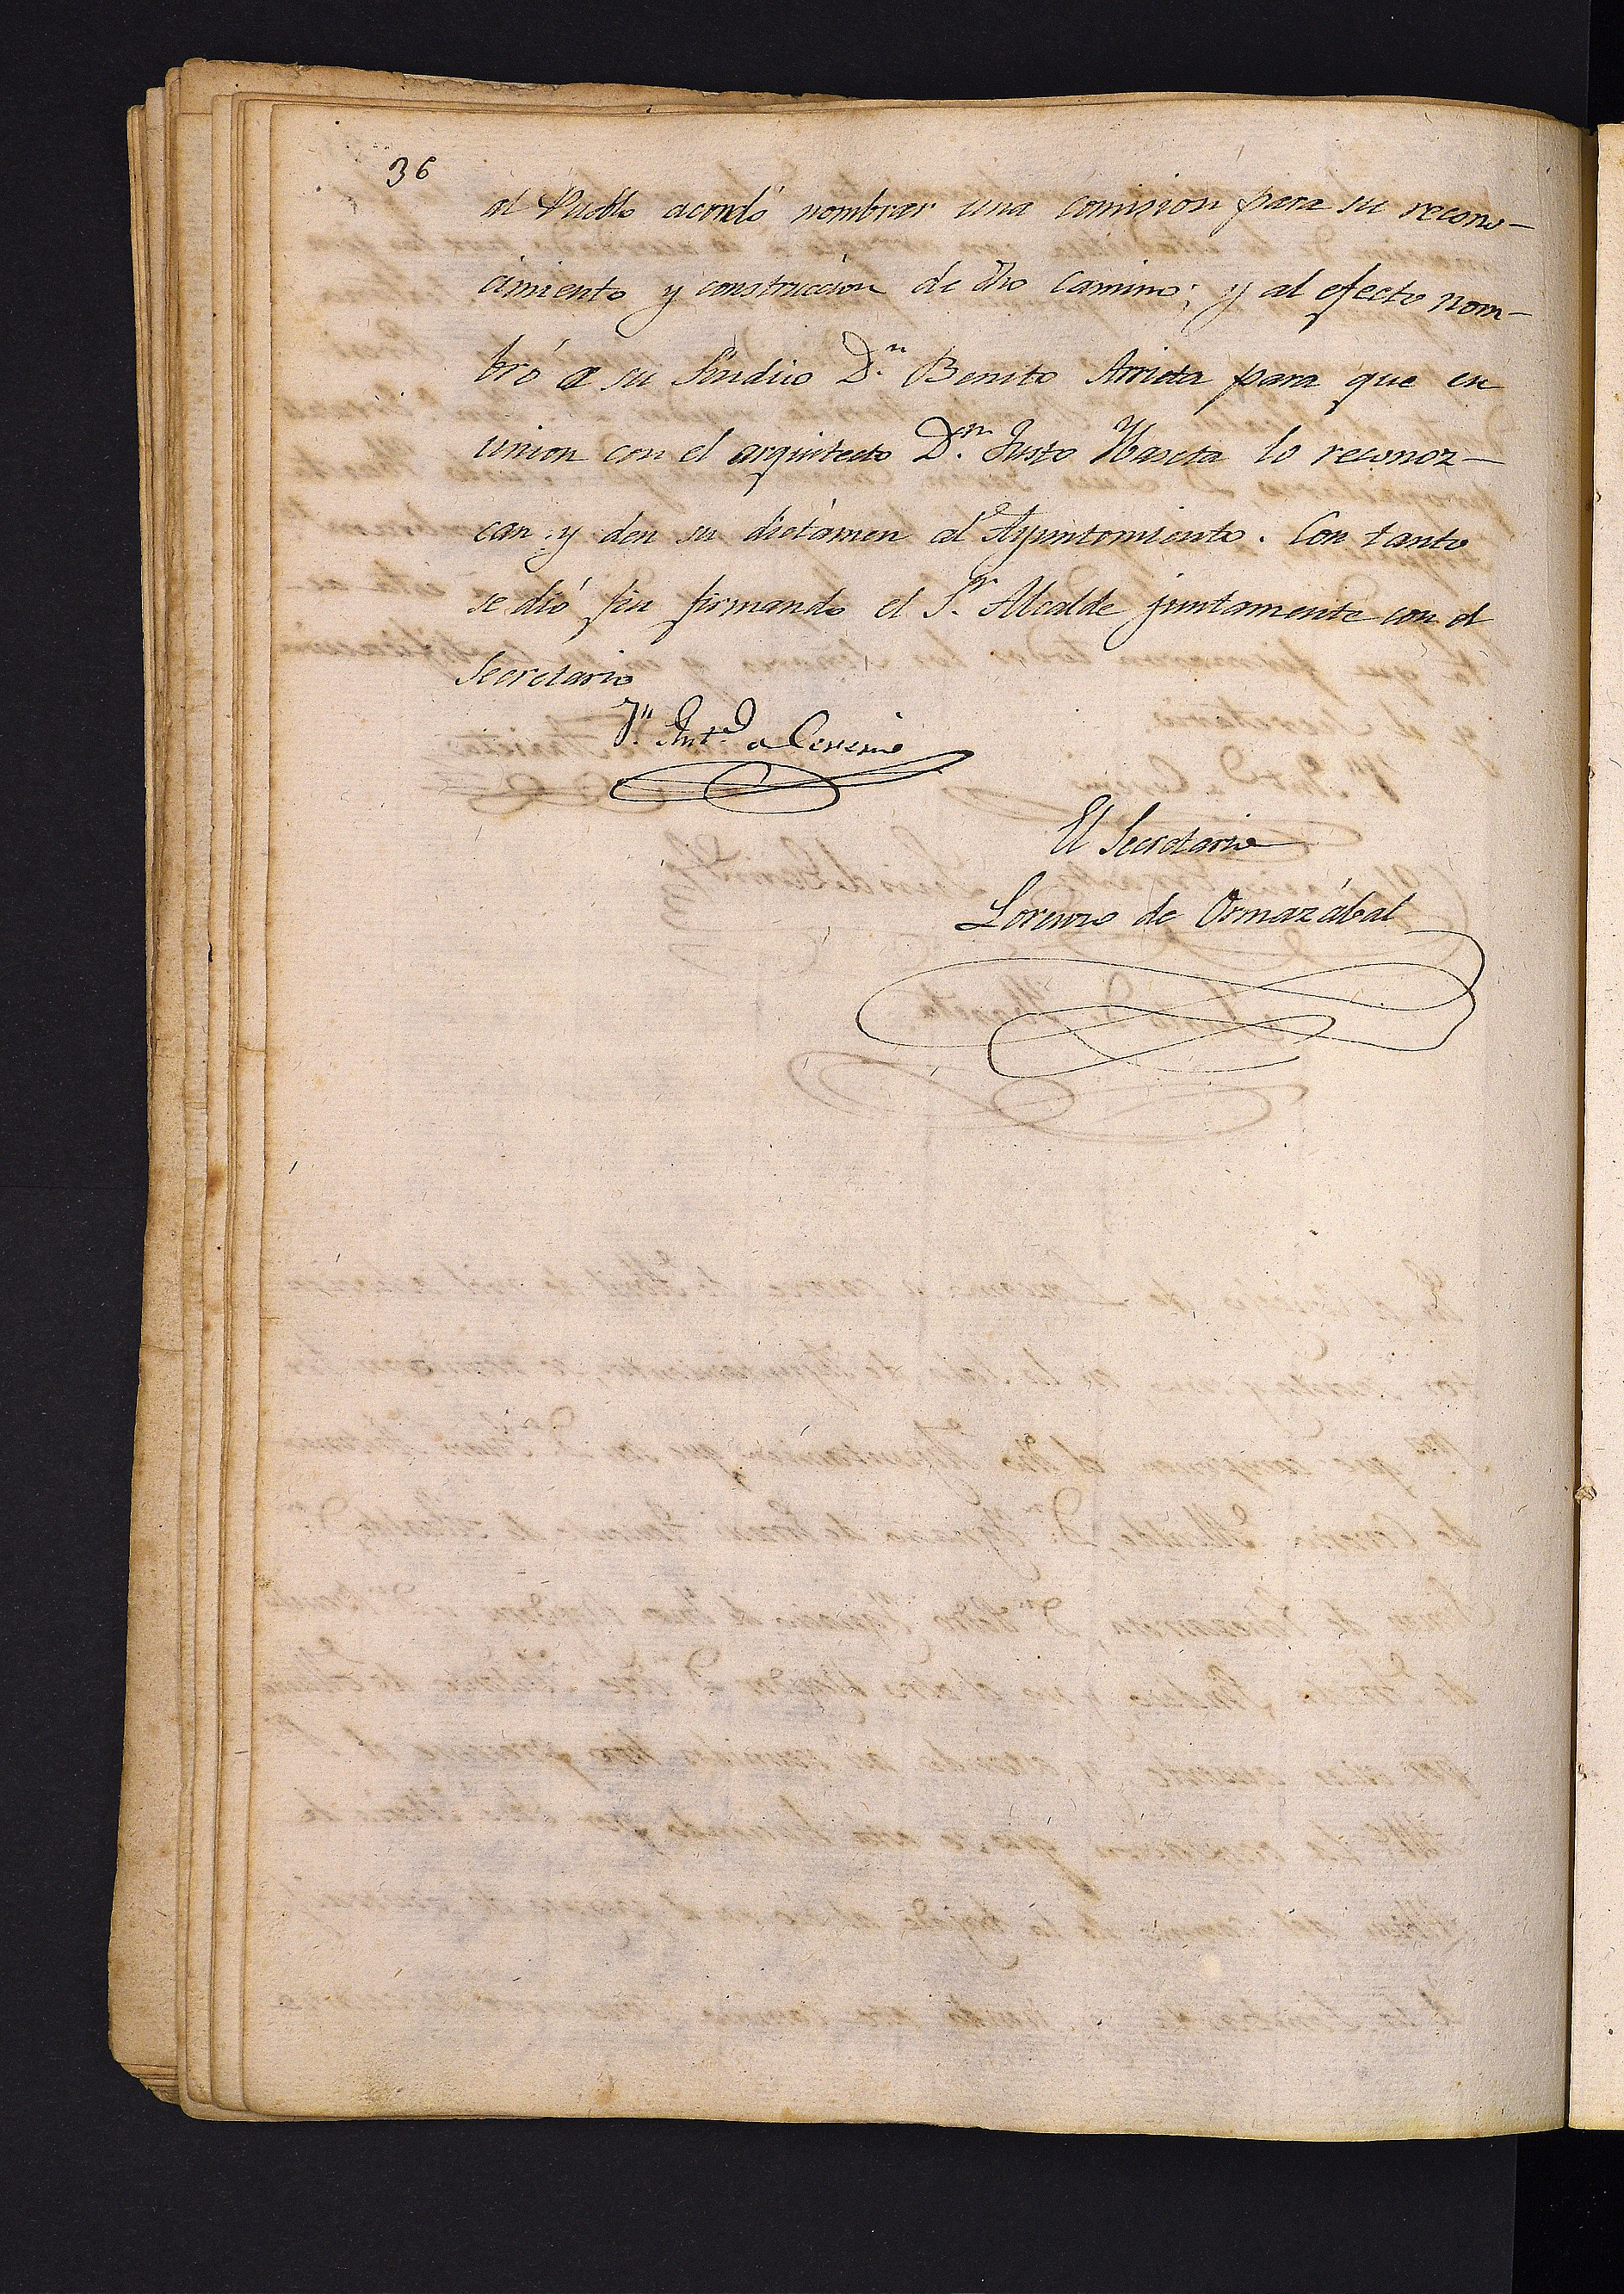 36
al Pueblo acordó nombrar una comision para su recono-
cimiento y construccion de dho camino; y al efecto nom-
bró a su Sindico Dn. Benito Arrieta para que en
union con el arquitecto Dn. Justo Maseta lo reconoz-
can y den su dictámen al Ayuntamiento. Con tanto
se dió fin firmando el Sr. Alcalde juntamente con el
Secretario
Jn. Anto. a Cereni
El Secretario
Lorenzo de Ormazábal